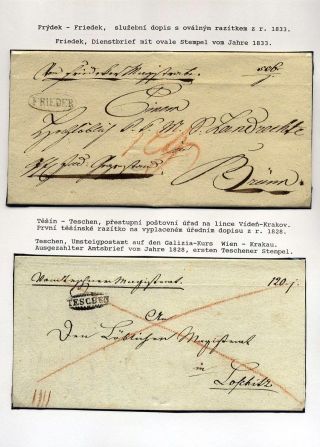 Frýdek - Friedek, služební dopis s oválným razítkem z r. 1833.
Friedek, Dienstbrief mit ovale Stempel vom Jahre 1833.
Von Friedeker Magistrate.
FRIEDEK
Einem
K. K. M. S. Landrechte
Brünn
Těšín - Teschen, přestupní poštovní úřad na lince Vídeň-Krakov.
První těšínské razítko na vyplaceném úředním dopisu z r. 1828.
Teschen, Umsteigpostamt auf den Galizia-Kurs Wien - Krakau.
Ausgezahlter Amtsbrief vom Jahre 1828, ersten Teschener Stempel.
Magistrat
TESCHEN
An
Den Löblichen Magistrat
in
Loschitz